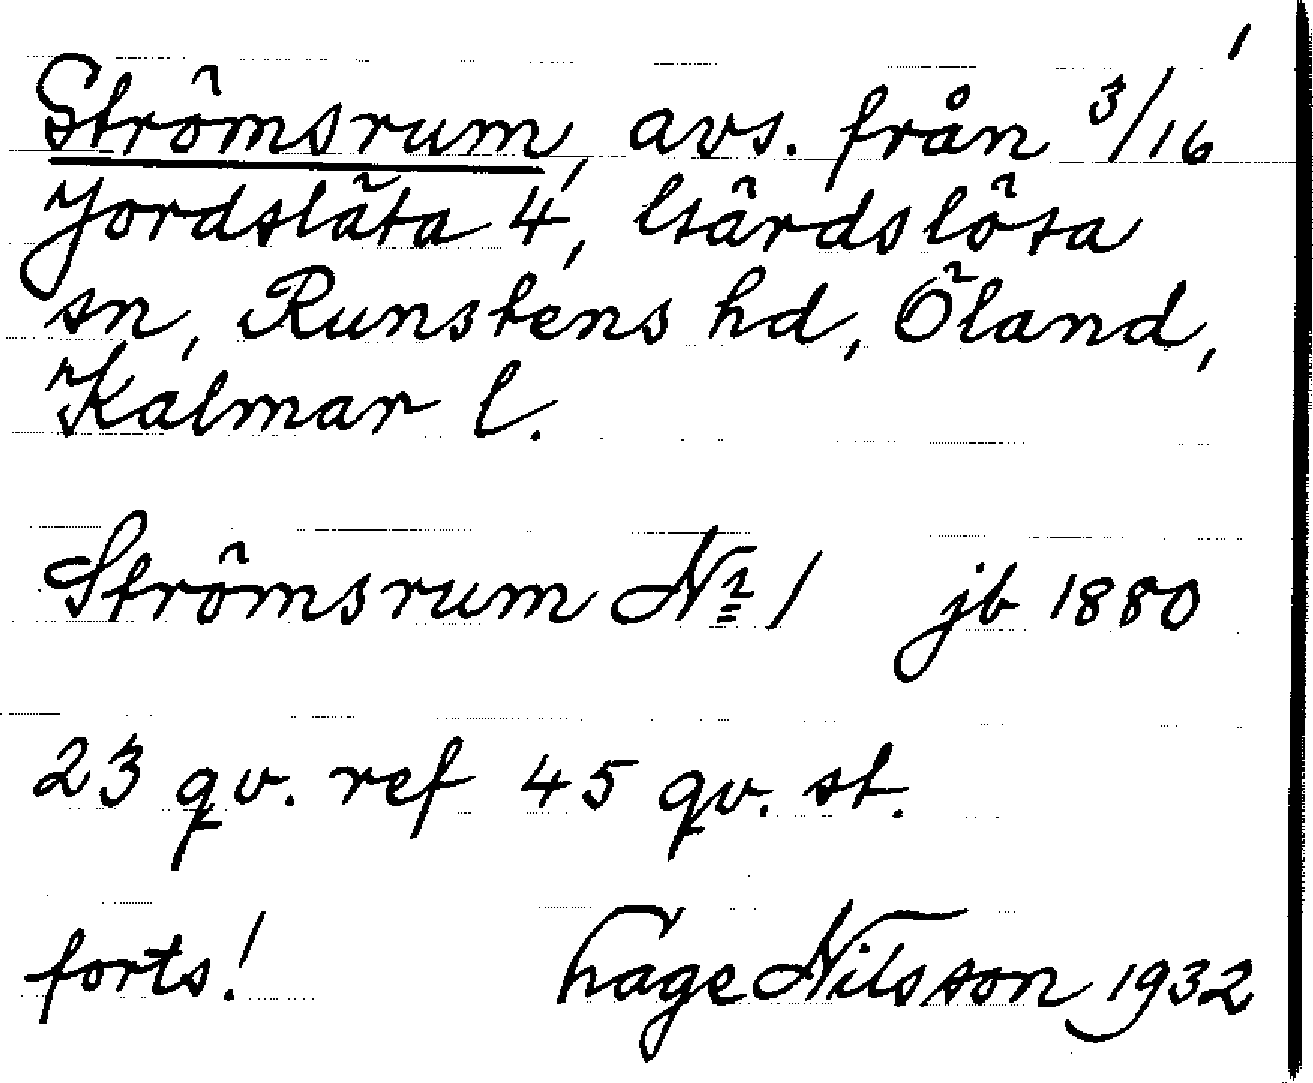 1
Strömsrum, avs. från 3/16
Jordsläta 4, Gärdslösa
sn, Runstens hd, Öland,
Kalmar l.
Strömsrum No 1 jb 1880
23 qv. ref 45 qv. st.
forts! Hage Nilsson 1932